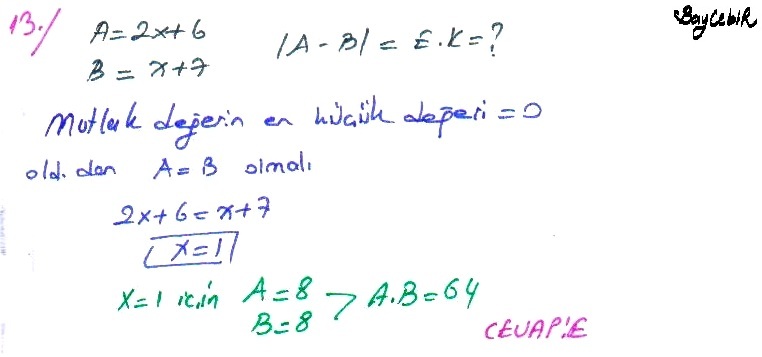 BayCebiR
13./ A=2x+6
B=x+7
|A-B|=E.K=?
Mutlak değerin en küçük değeri=0
old. dan A=B olmalı
2x+6=x+7
x=1
x=1 için A=8
B=8 > A.B=64
CEVAP:E